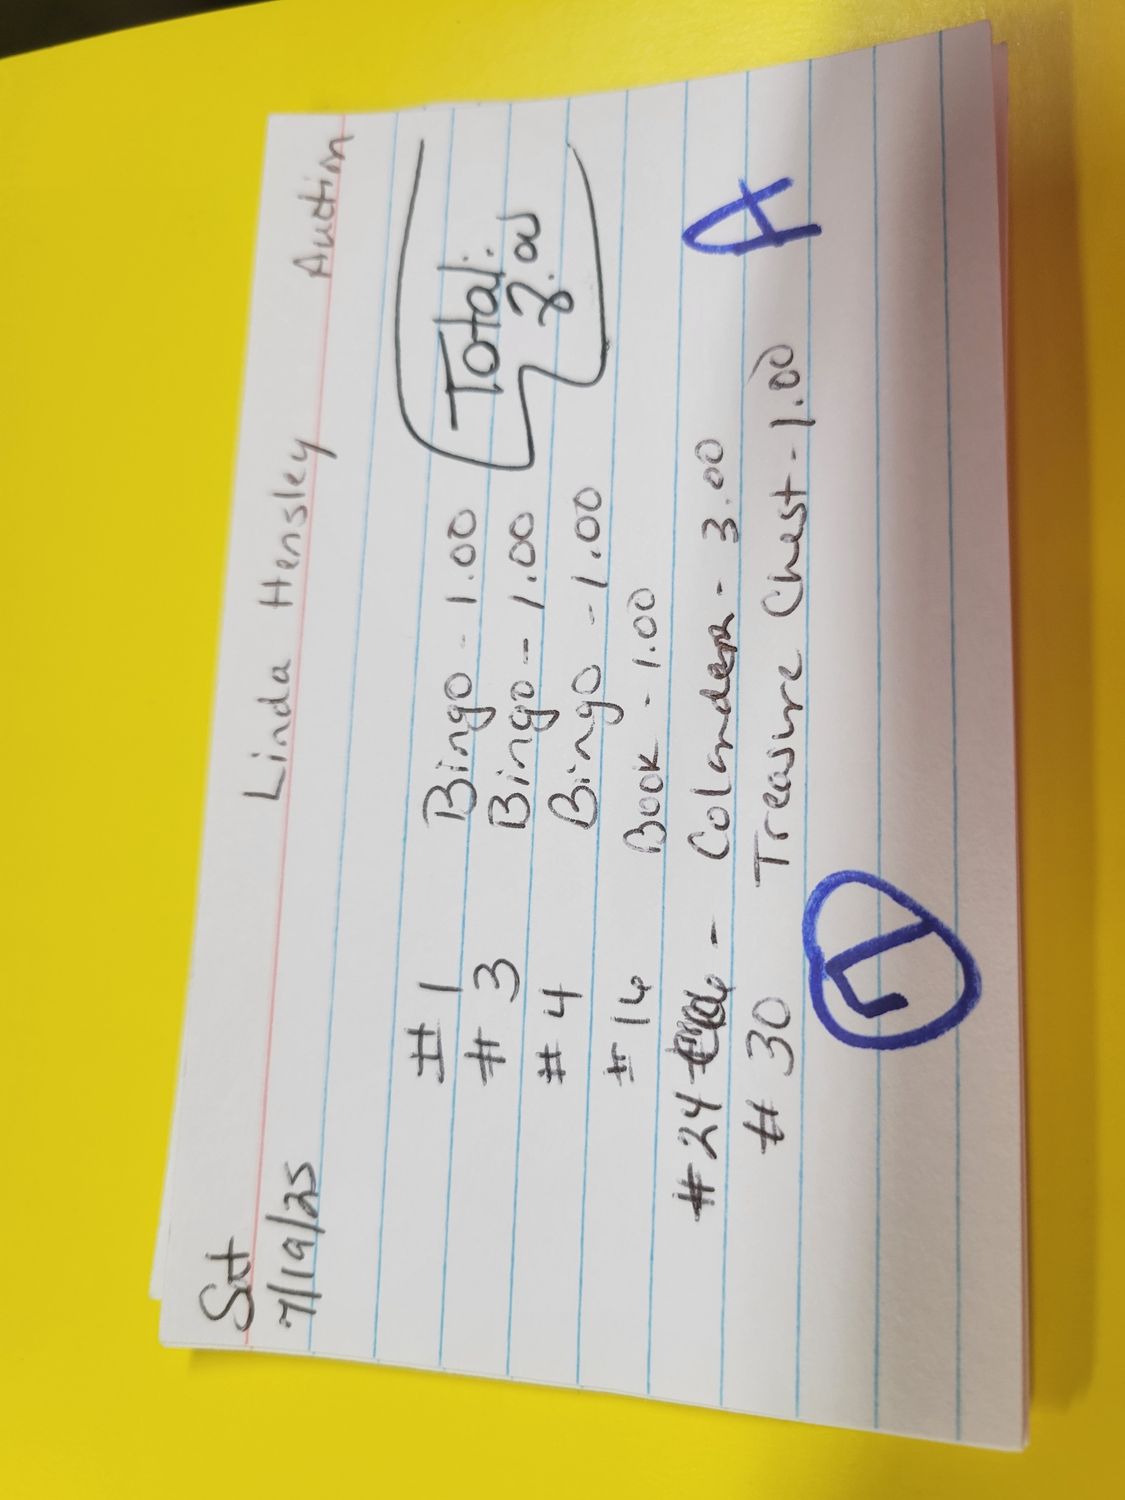 Sat Linda Hensley Auction
7/19/25
#1 Bingo - 1.00
#3 Bingo - 1.00
#4 Bingo - 1.00
#14 Book - 1.00
#24 - Colander - 3.00
#30 Treasure Chest - 1.00
Total:
8.00
A